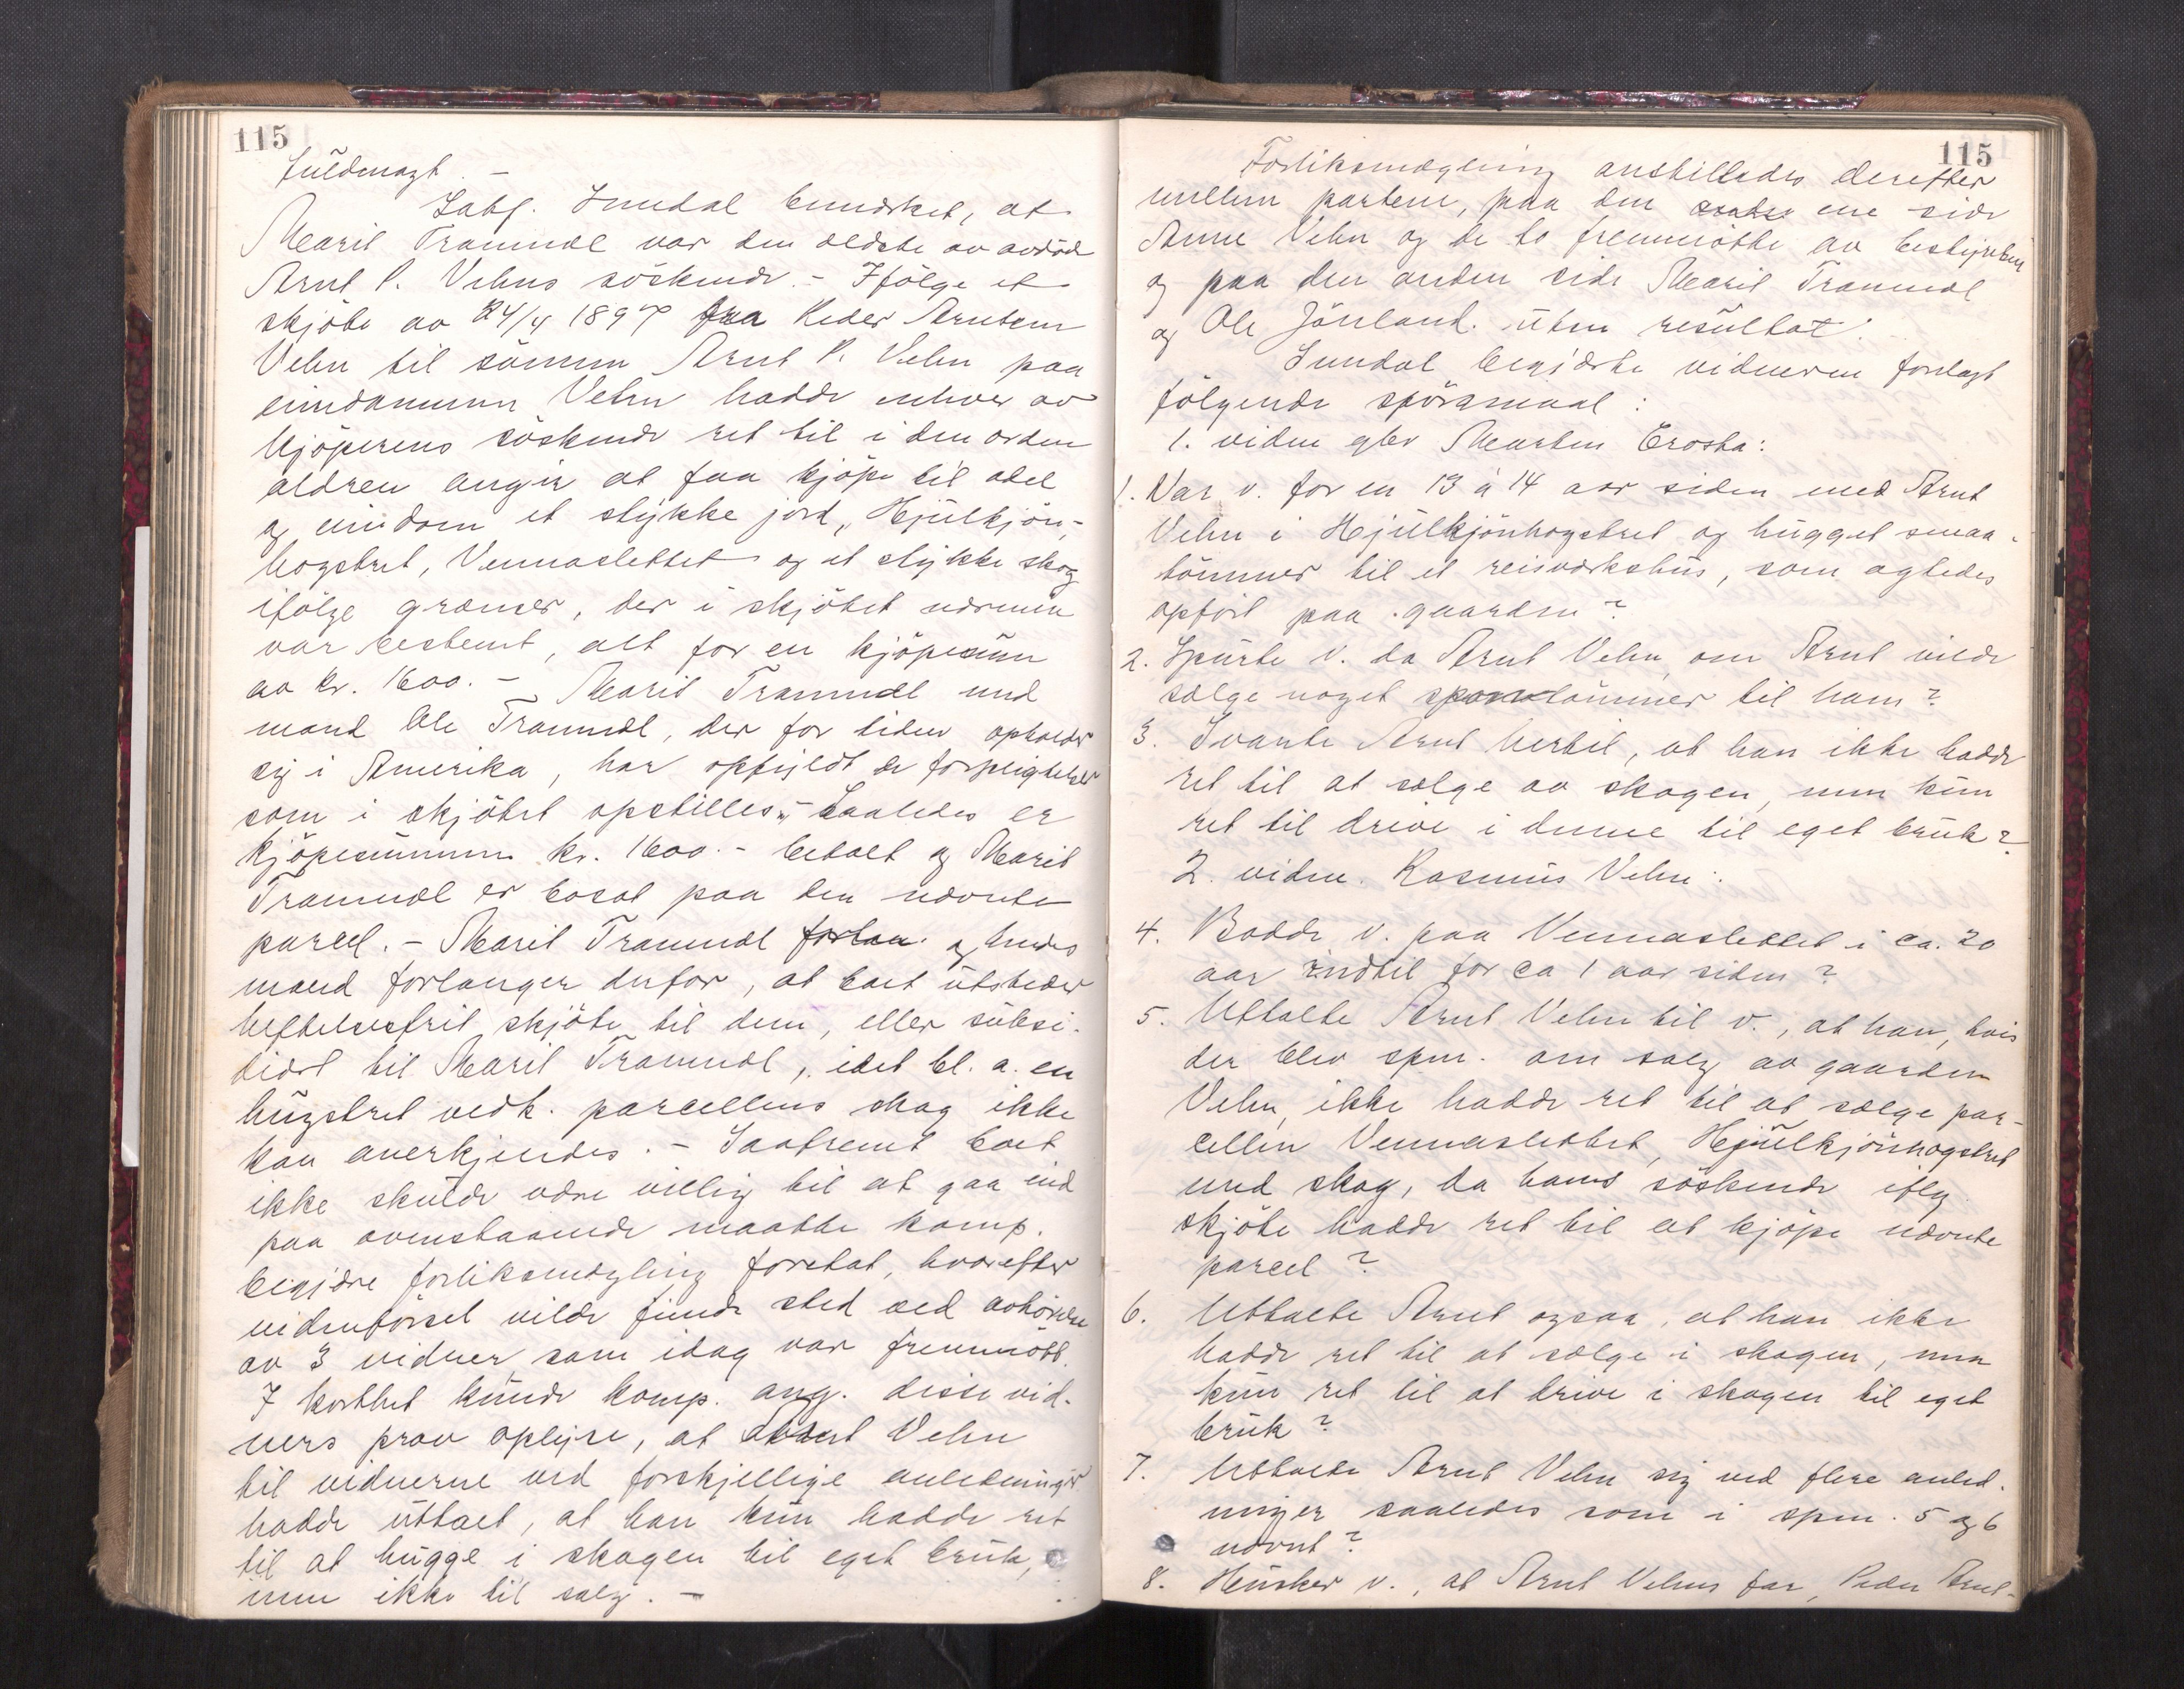 115
fuldmagt. –
Sakf. Sundal bemærket, at
Marit Tramndl var den ældste av avdöde
Arnt P. Vehns söskende. – Ifölge et
skjöte av 24/4 1897 fra Peder Arntsen
Vehn til sönnen Arnt P. Vehn paa
eiendommen Vehn hadde enhver av
kjöperens söskende ret til i den orden
aldren angir at faa kjöpe til odel
og eiendom et stykke jord, Hjulkjön-
hogstret, Vennaslettet og et stykke skog
ifölge grænser, der i skjötet nærmere
var bestemt, alt for en kjöpesum
av kr. 1600. – Marit Tramndl med
mand Ole Tramndl, der for tiden opholder
sig i Amerika, har opfyldt de forpligtelser
som i skjötet opstilles. – Saaledes er
kjöpesummen kr. 1600. – betalt og Marit
Tramndl er bosat paa den nævnte
parcel. – Marit Tramndl forlan. og hendes
mand forlanger derfor, at boet utsteder
heftelsesfrit skjöte til dem, eller subsi-
diært til Marit Tramndl, idet bl. a. en
hugstret vedk. parcellens skog ikke
kan anerkjendes. – Saafremt boet
ikke skulde være villig til at gaa ind
paa ovenstaaende maatte komp.
begjære forliksmægling foretat, hvorefter
vidneförsel vilde finde sted ved avhörelse
av 3 vidner som idag var fremmött.
I korthet kunde komp. ang. disse vid-
ners prov oplyse, at Arnt Vehn
til vidnerne ved forskjellige anledninger
hadde uttalt, at han kun hadde ret
til at hugge i skogen til eget bruk,
men ikke til salg. –
115
Forliksmægling anstilledes derefter
mellem partene, paa den ene side
Anne Vehn og de to fremmötte av bestyrelsen
og paa den anden side Marit Tramndl
og Ole Jönland. uten resultat.
Sundal begjærte vidnerne forelagt
fölgende spörsmaal:
1. vidne gbr Marten Crosta:
1. Var v. for en 13 à 14 aar siden med Arnt
Vehn i Hjulkjönhogstret og hugget smaa-
tömmer til et reisverkshus, som agtedes
opfört paa gaarden?
2. Spurte v. da Arnt Vehn, om Arnt vilde
sælge noget tömmer til ham?
3. Svarte Arnt hertil, at han ikke hadde
ret til at sælge av skogen, men kun
ret til drive i denne til eget bruk?
2. vidne. Rasmus Vehn:
4. Bodde v. paa Vennaslettet i ca. 20
aar indtil for ca 1 aar siden?
5. Uttalte Arnt Vehn til v., at han, hvis
der blev spm. om salg av gaarden
Vehn, ikke hadde ret til at sælge par-
cellen Vennaslettet, Hjulkjönhogstret
med skog, da hans söskende iflg.
skjöte hadde ret til at kjöpe nævnte
parcel?
6. Uttalte Arnt ogsaa, at han ikke
hadde ret til at sælge i skogen, men
kun ret til at drive i skogen til eget
bruk?
7. Uttalte Arnt Vehn sig ved flere anled-
ninger saaledes som i spm. 5 og 6
nævnt?
8. Husker v., at Arnt Vehns far, Peder Arnt-